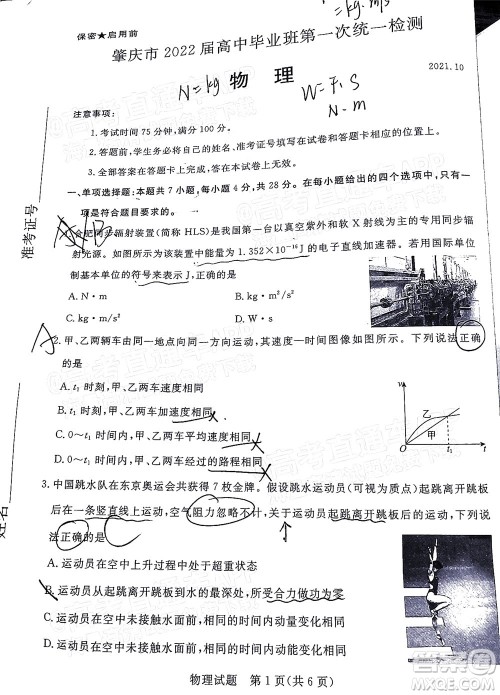 kg·m/s
保密★启用前
肇庆市 2022 届高中毕业班第一次统一检测
N=kg
物 理
W=F·S
N-m
2021.10
注意事项：
1.考试时间 75 分钟,满分 100 分。
2.答题前,学生务必将自己的姓名、准考证号填写在试卷和答题卡上相应的位置上。
3.全部答案在答题卡上完成,答在本试卷上无效。
一、单项选择题:本题共 7 小题,每小题 4 分,共 28 分。在每小题给出的四个选项中,只有一
项是符合题目要求的。
合肥同步辐射装置(简称 HLS)是我国第一台以真空紫外和软 X 射线为主的专用同步辐
射光源。如图所示的该装置中能量为 1.352×10⁻¹⁶J 的电子直线加速器。若用国际单位
制基本单位的符号来表示 J,正确的是
A. N·m
B. kg·m/s
C. kg·m²/s²
D. W·s
A
2.甲、乙两辆车由同一地点向同一方向运动,其速度—时间图像如图所示。下列说法正确
的是
A. t₁ 时刻,甲、乙两车速度相同
B. t₁ 时刻,甲、乙两车加速度相同
C. 0～t₁ 时间内,甲、乙两车平均速度相同
D. 0～t₁ 时间内,甲、乙两车经过的路程相同
v
乙
甲
O
t₁
t
3.中国跳水队在东京奥运会共获得 7 枚金牌。假设跳水运动员(可视为质点)起跳离开跳板
后在一条竖直线上运动,空气阻力忽略不计,关于运动员起跳离开跳板后的运动,下列说
法正确的是
A.运动员在空中上升过程中处于超重状态
B.运动员从起跳离开跳板到水的最深处,所受合力做功为零
C.运动员在空中未接触水面前,相同的时间内动量变化相同
D.运动员在空中未接触水面前,相同的时间内动能变化相同
物理试题 第 1 页(共 6 页)
准考证号
姓名